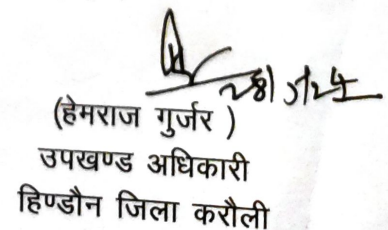 (हेमराज गुर्जर )
उपखण्ड अधिकारी
हिण्डौन जिला करौली